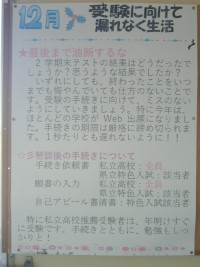 12月 受験に向けて
漏れなく生活
★最後まで油断するな
2学期末テストの結果はどうだったで
しょうか?思うような結果でしたか?
いずれにしても、終わったことをいつ
までも悔やんでいても仕方のないことで
す。受験に向けて、ミスのない
ようにしていきましょう。特に今年は、
ほとんどの学校がWeb出願になりまし
た。手続きの期間は厳格に締め切られま
す。1秒たりとも遅れないように!!
懇談後の手続きについて
手続き依頼書 私立高校:全員
県立特色入試:該当者
願書の入力 私立高校:全員
県立特色入試:該当者
自己アピール書清書:特色入試該当者
特に私立高校推薦受験者は、年明けすぐ
に受験です。手続きとともに、勉強もしっ
かりと!